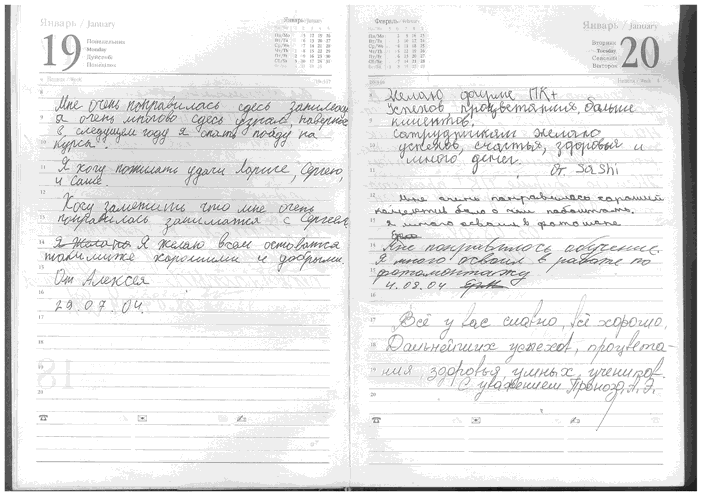 Январь / January
19
Понедельник
Monday
Мне очень понравилась сдесь заниматся
я очень многово сдесь узнал наверное
в следущем году я опать пойду на
курсы.
Я хочу пожилать удачи Ларисе, Сергею,
и Саше.
Хочу заметить что мне очень
понравилась заниматся с Сергеем
Я желаю всем остоватся
такимиже хорошими и добрыми.
От Алексея
29.07.04.
Январь / January
20
Вторник
Tuesday
Желаю фирме ПК+
Успехов, процветания, больше
клиентов.
Сотрудникам желаю
успехов, счастья, здоровья и
много денег.
От Sashi
Мне очень понравилось хороший
коллектив было о чем поболтать.
Я много освоил в фотошопе
Мне понравилось обучение.
Я много освоил в работе по
фотомонтажу
4.08.04
Всё у вас славно, всё хорошо,
Дальнейших успехов, процвета-
ния, здоровья, умных учеников.
С уважением